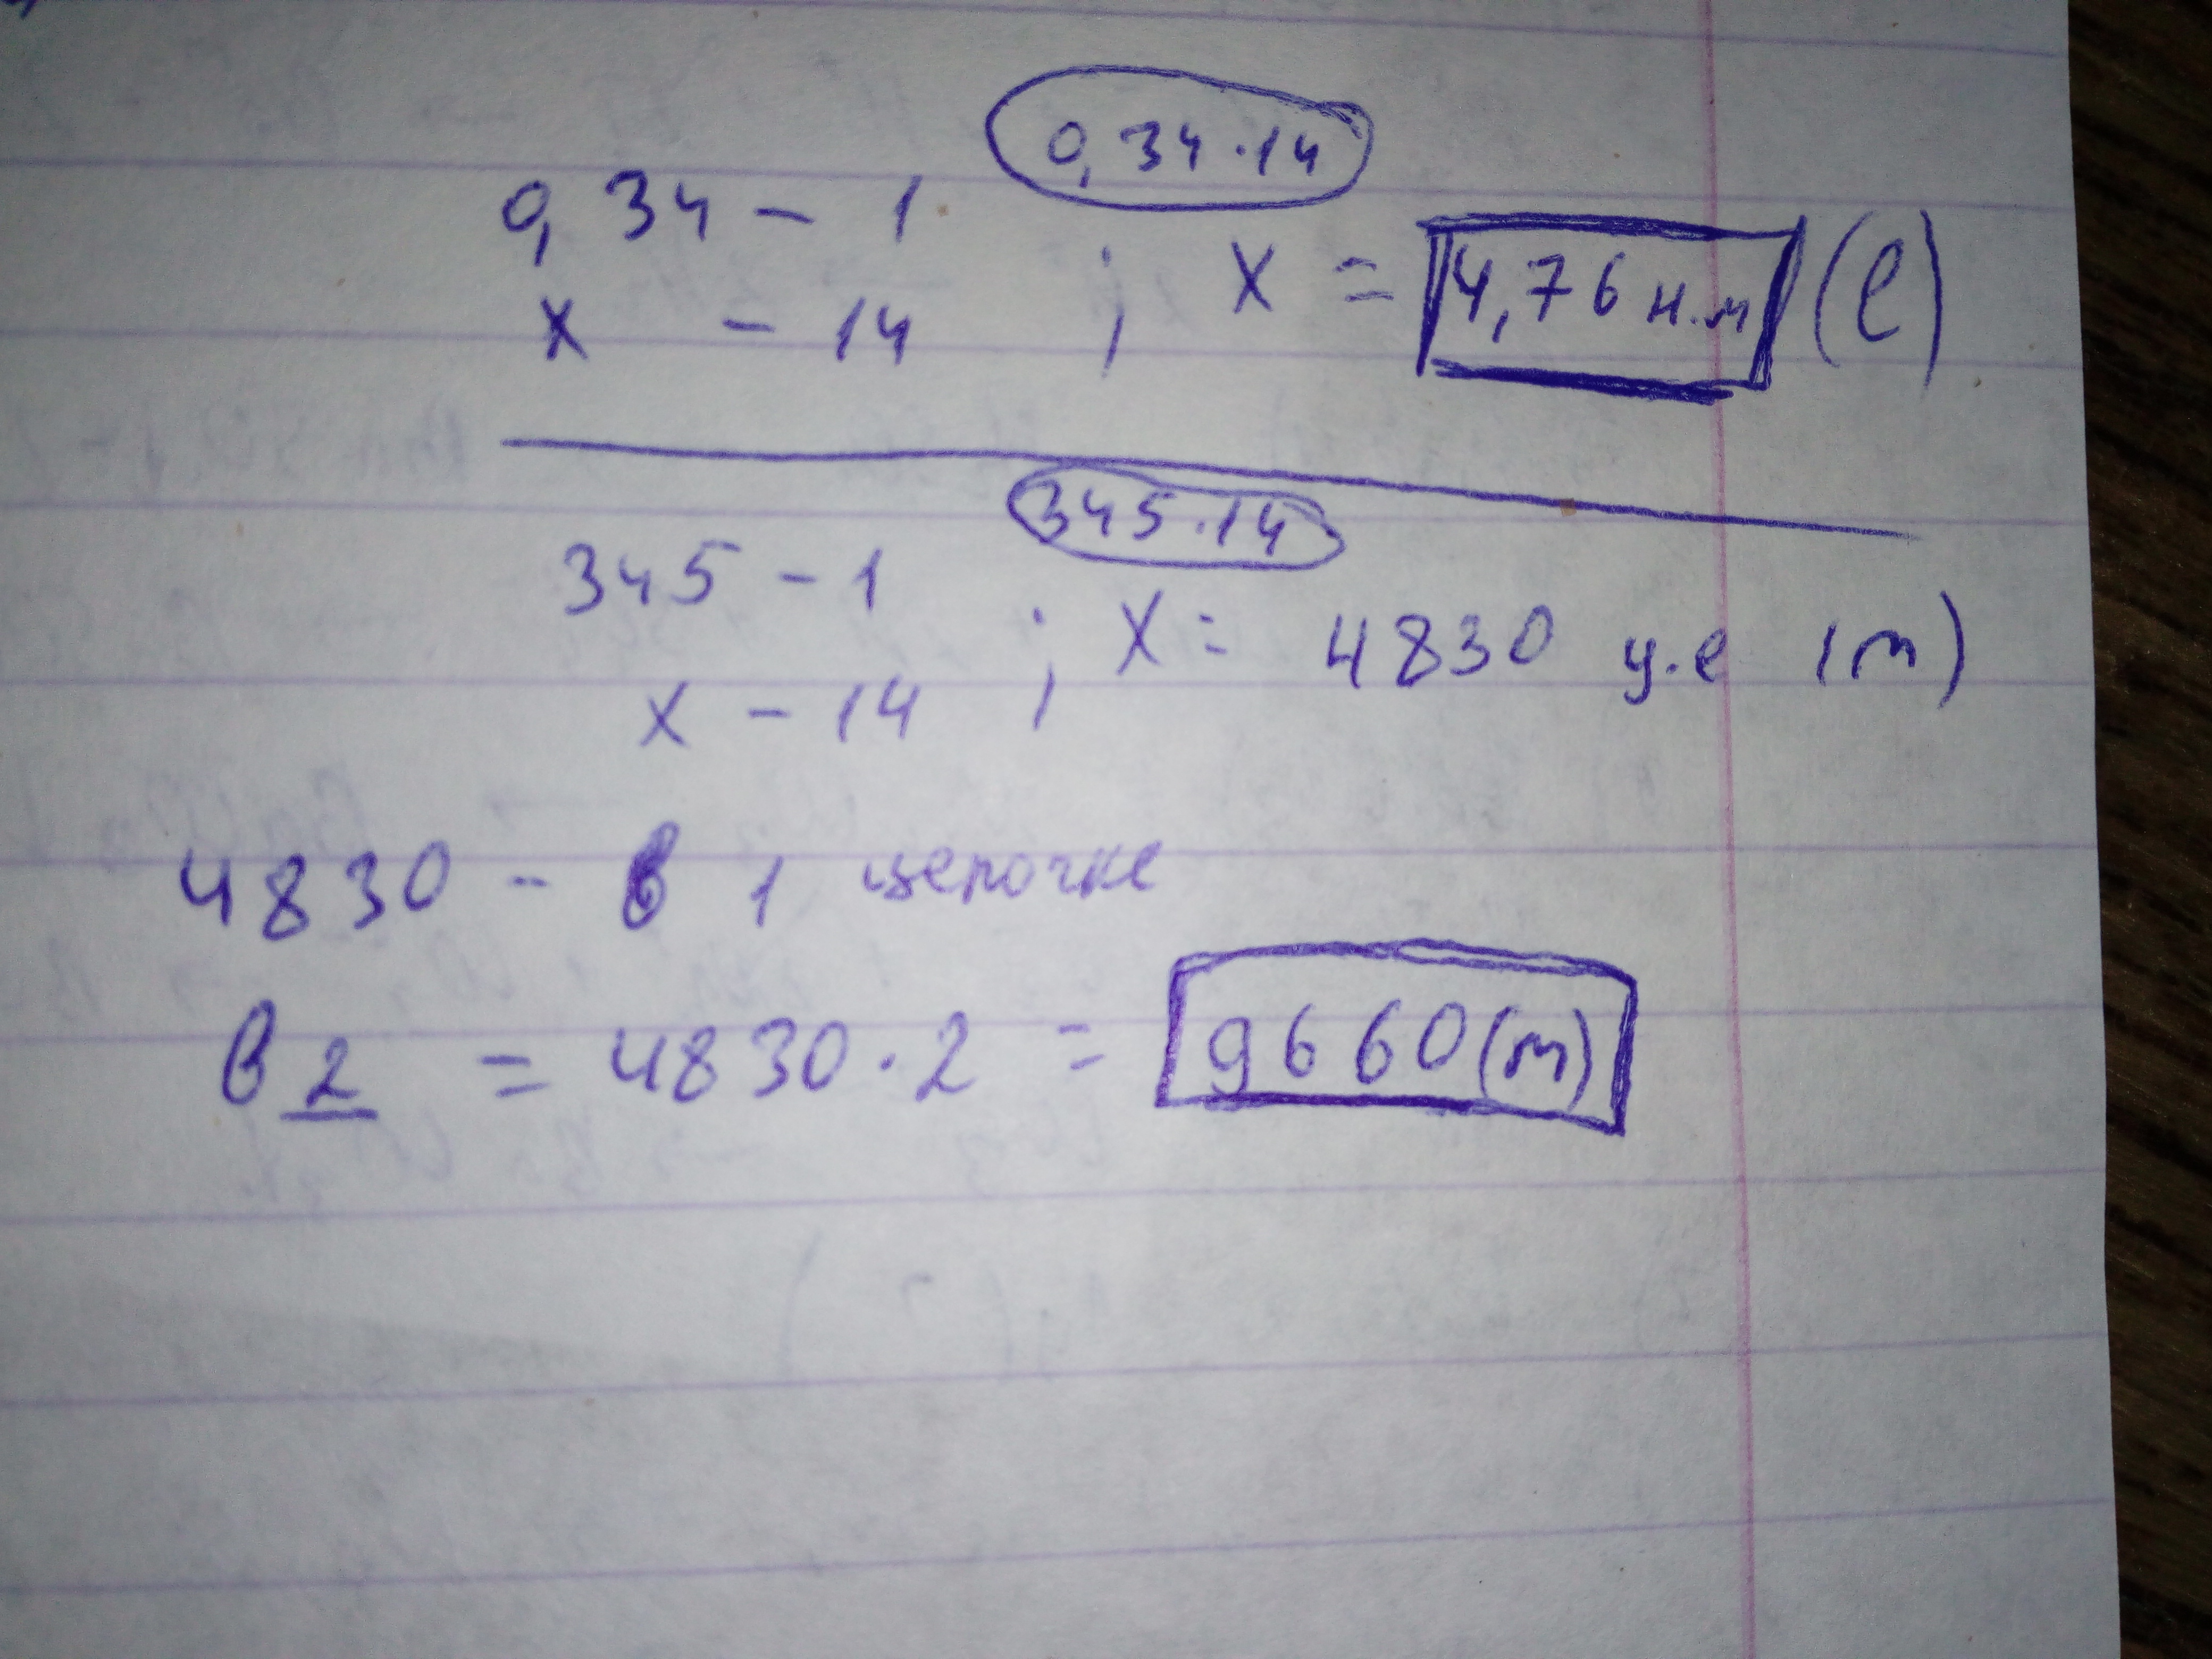 0,34·14
0,34 - 1
x - 14 ; x = 4,76 н.м (l)
345·14
345 - 1
x - 14 ; x = 4830 y.e (m)
4830 - в 1 цепочке
в 2 = 4830·2 = 9660(m)